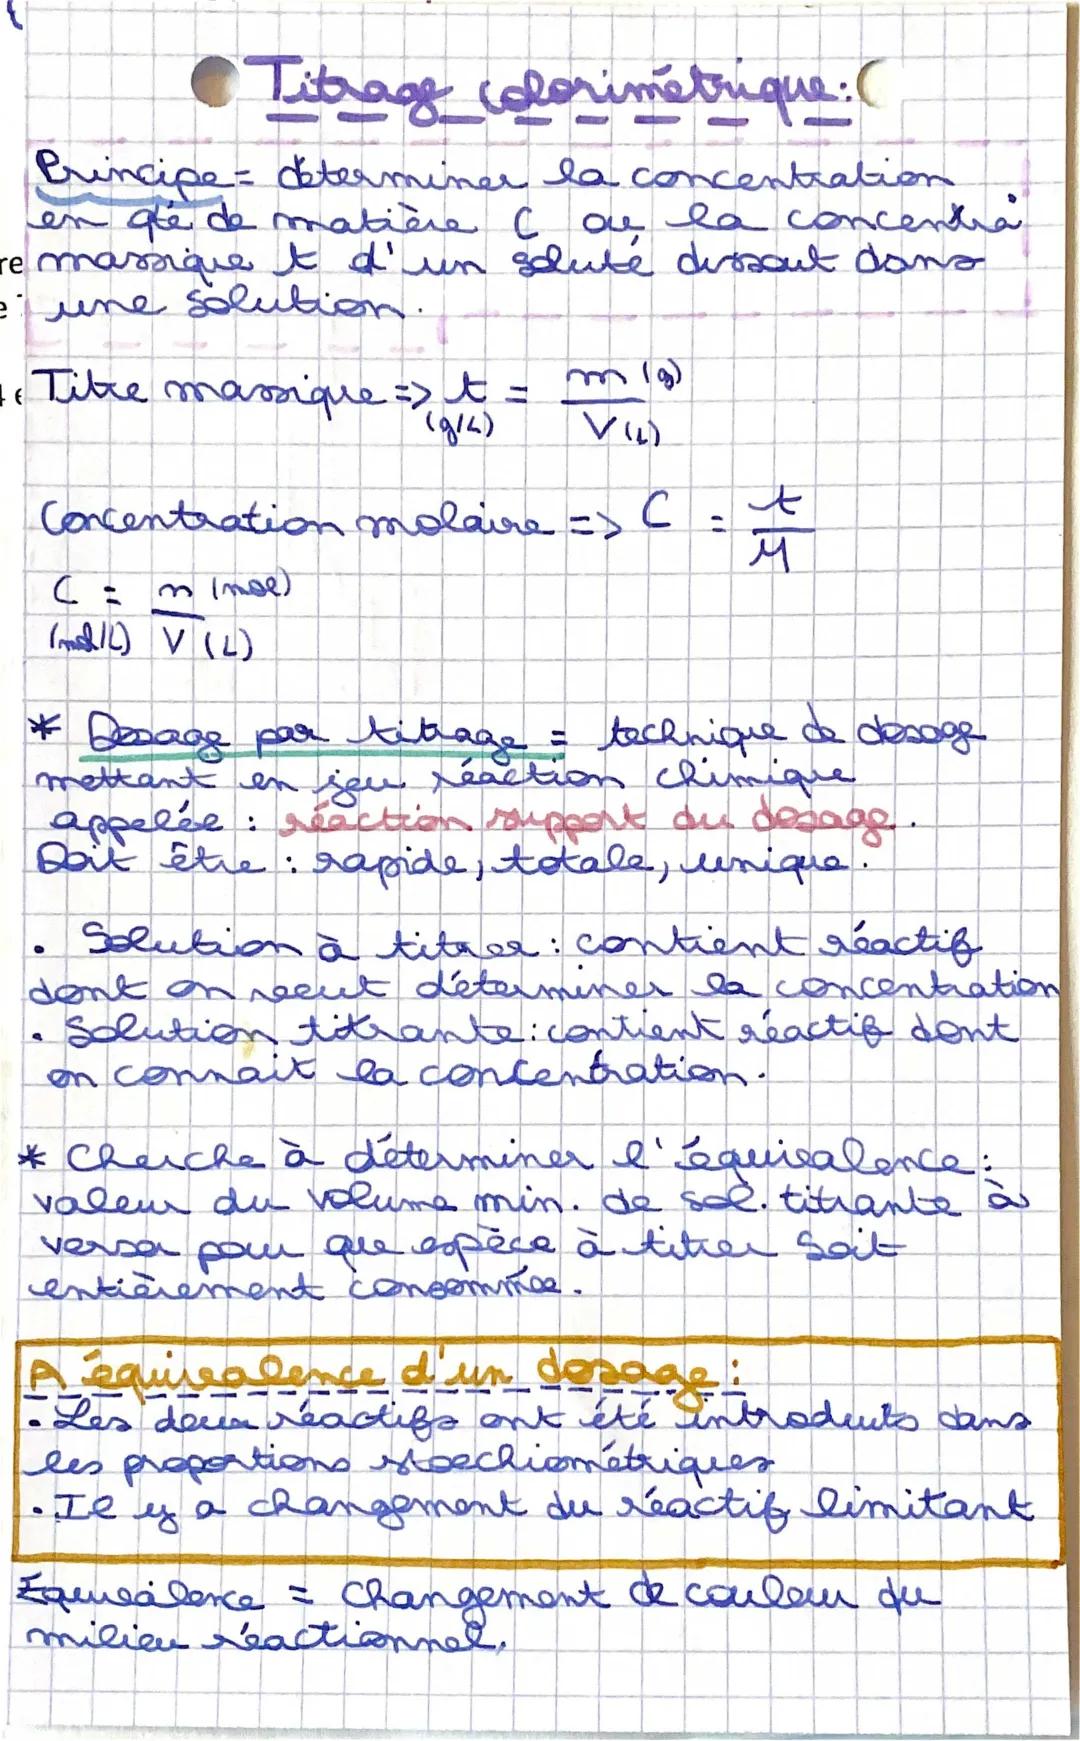 Titrage colorimétrique:
Principe = déterminer la concentration
en qté de matière C ou la concentra°
massique t d'un soluté dissout dans
une solution.
re
e
Titre massique => t = m (g)
(g/L) V (L)
Concentration molaire => C = t
M
C = n (mol)
(mol/L) V (L)
* Dosage par titrage = technique de dosage
mettant en jeu réaction chimique
appelée : réaction support du dosage.
Doit être : rapide, totale, unique.
• Solution à titrer : contient réactif
dont on veut déterminer la concentration
• Solution titrante : contient réactif dont
on connait la concentration.
* Cherche à déterminer l'équivalence :
valeur du volume min. de sol. titrante à
verser pour que espèce à titrer soit
entièrement consommée.
A équivalence d'un dosage :
• Les deux réactifs ont été introduits dans
les proportions stoechiométriques
• Il y a changement du réactif limitant
Équivalence = Changement de couleur du
milieu réactionnel.